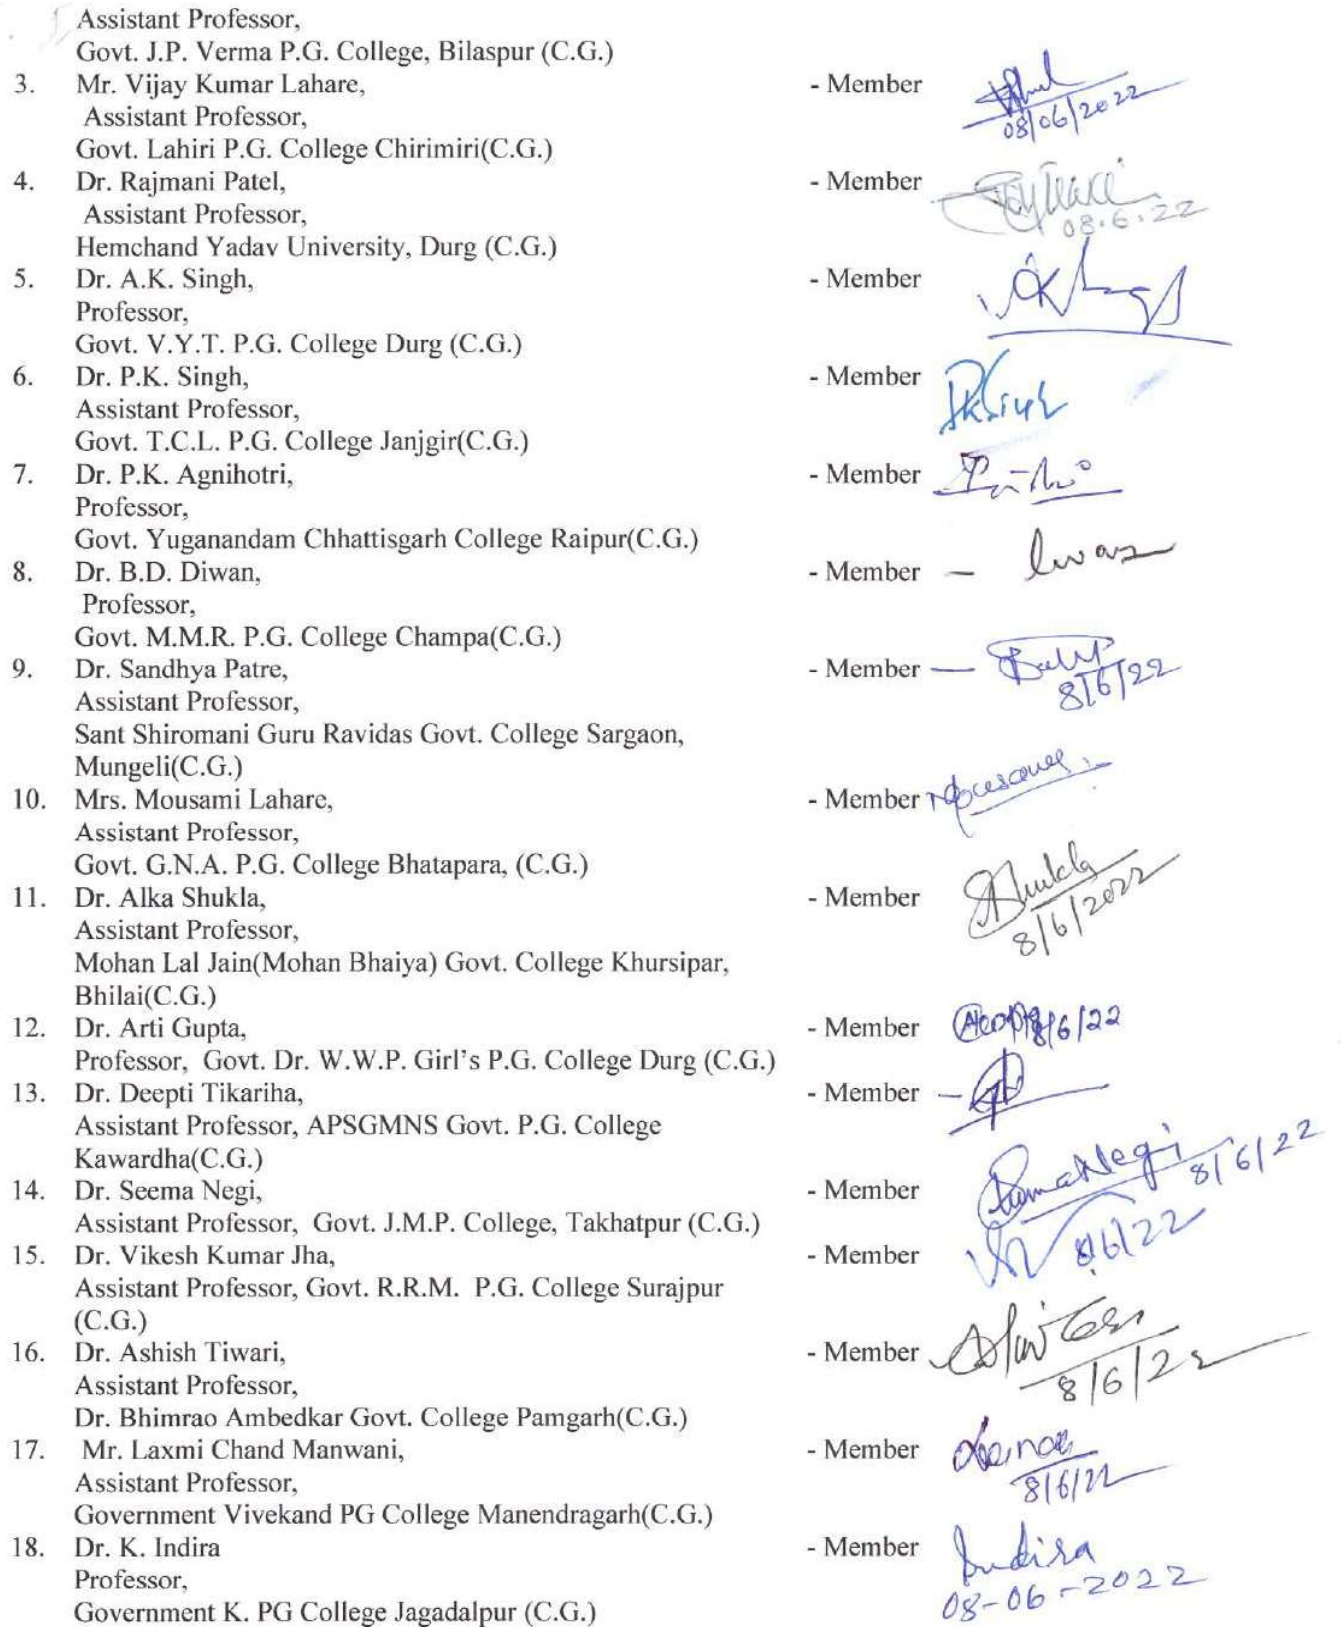 Assistant Professor,
Govt. J.P. Verma P.G. College, Bilaspur (C.G.)
3. Mr. Vijay Kumar Lahare, - Member
Assistant Professor, 08/06/2022
Govt. Lahiri P.G. College Chirimiri(C.G.)
4. Dr. Rajmani Patel, - Member
Assistant Professor, 08.6.22
Hemchand Yadav University, Durg (C.G.)
5. Dr. A.K. Singh, - Member
Professor,
Govt. V.Y.T. P.G. College Durg (C.G.)
6. Dr. P.K. Singh, - Member
Assistant Professor,
Govt. T.C.L. P.G. College Janjgir(C.G.)
7. Dr. P.K. Agnihotri, - Member
Professor,
Govt. Yuganandam Chhattisgarh College Raipur(C.G.)
8. Dr. B.D. Diwan, - Member —
Professor,
Govt. M.M.R. P.G. College Champa(C.G.)
9. Dr. Sandhya Patre, - Member —
Assistant Professor, 8/6/22
Sant Shiromani Guru Ravidas Govt. College Sargaon,
Mungeli(C.G.)
10. Mrs. Mousami Lahare, - Member
Assistant Professor,
Govt. G.N.A. P.G. College Bhatapara, (C.G.)
11. Dr. Alka Shukla, - Member AShukla
Assistant Professor, 8/6/2022
Mohan Lal Jain(Mohan Bhaiya) Govt. College Khursipar,
Bhilai(C.G.)
12. Dr. Arti Gupta, - Member 8/6/22
Professor, Govt. Dr. W.W.P. Girl's P.G. College Durg (C.G.)
13. Dr. Deepti Tikariha, - Member —
Assistant Professor, APSGMNS Govt. P.G. College
Kawardha(C.G.)
14. Dr. Seema Negi, - Member Negi 8/6/22
Assistant Professor, Govt. J.M.P. College, Takhatpur (C.G.)
15. Dr. Vikesh Kumar Jha, - Member 8/6/22
Assistant Professor, Govt. R.R.M. P.G. College Surajpur
(C.G.)
16. Dr. Ashish Tiwari, - Member
Assistant Professor, 8/6/22
Dr. Bhimrao Ambedkar Govt. College Pamgarh(C.G.)
17. Mr. Laxmi Chand Manwani, - Member
Assistant Professor, 8/6/22
Government Vivekand PG College Manendragarh(C.G.)
18. Dr. K. Indira - Member Indira
Professor, 08-06-2022
Government K. PG College Jagadalpur (C.G.)